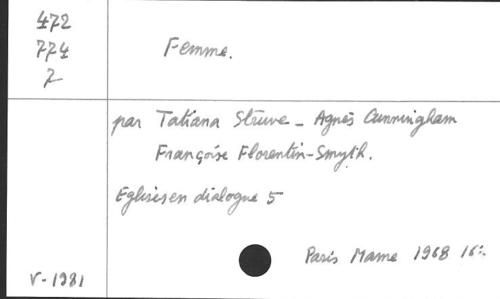 472
774
7
Femme.
par Tatiana Struve - Agnès Cunningham
Françoise Florentin-Smyth.
Eglises en dialogue 5
Paris Mame 1968 16:
V-1981